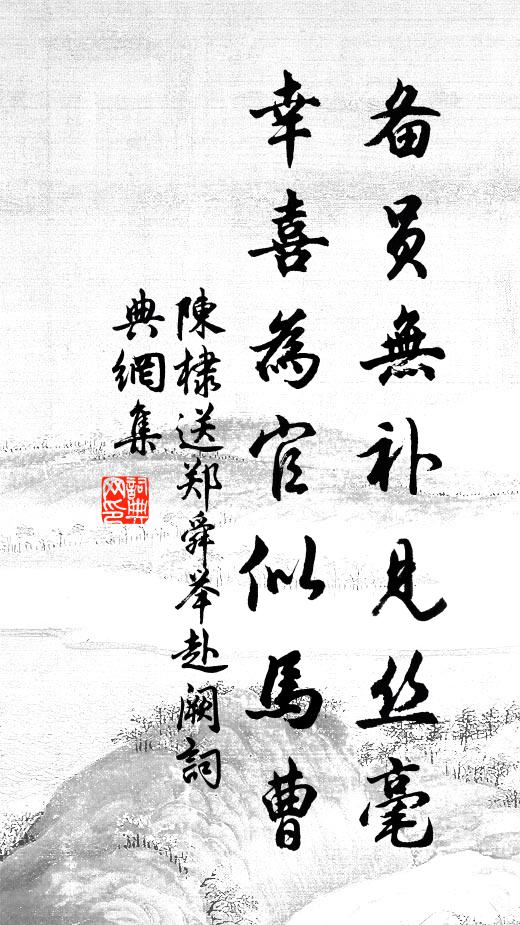 备员無补见丝毫
幸喜為官似馬曹
陳棣送郑舜举赴阙詞
典網集
詞典網印